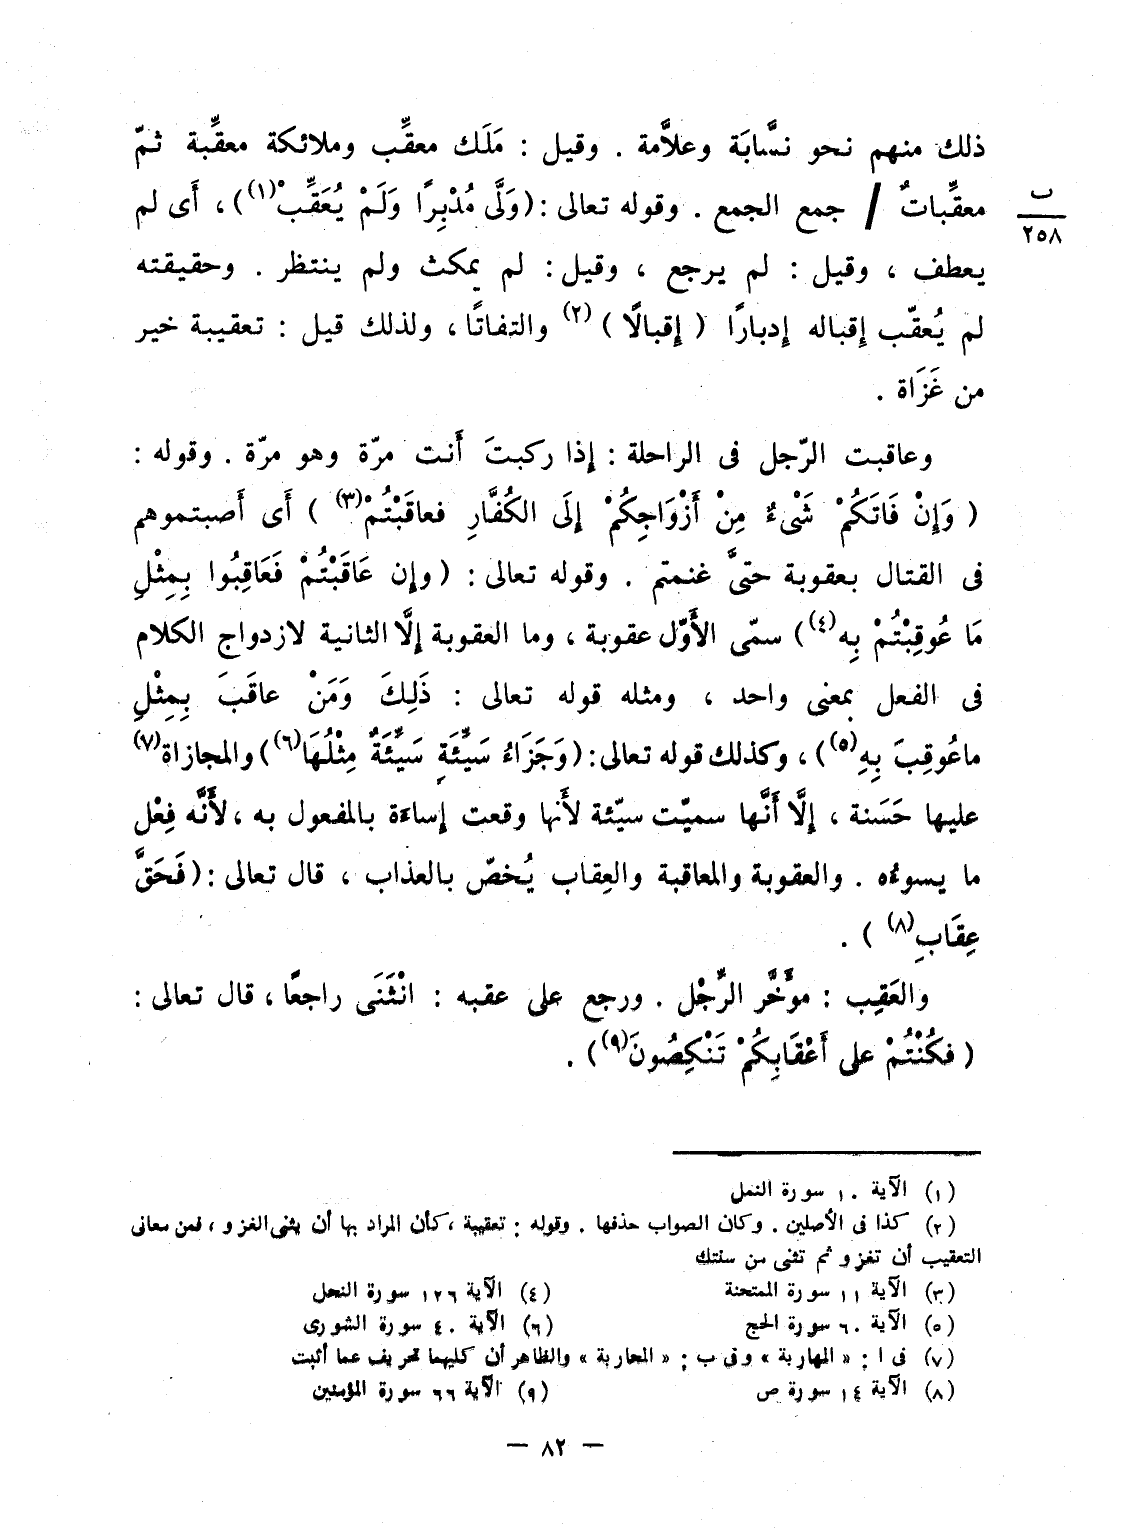 ذلك منهم نحو نسَّابَة وعلاَّمة . وقيل : مَلَك معقِّب وملائكة معقِّبة ثمّ
معقِّباتٌ / جمع الجمع . وقوله تعالى : ( وَلَّى مُدْبِرًا وَلَمْ يُعَقِّبْ(١) ) ، أَى لم
ب
٢٥٨
يعطف ، وقيل : لم يرجع ، وقيل : لم يمكث ولم ينتظر . وحقيقته
لم يُعقّب إقباله إدبارًا ( إقبالًا ) (٢) والتفاتًا ، ولذلك قيل : تعقيبة خير
من غَزَاة .
وعاقبت الرّجل فى الراحلة : إذا ركبتَ أَنت مرّة وهو مرّة . وقوله :
( وَإِنْ فَاتَكُمْ شَىْءٌ مِنْ أَزْوَاجِكُمْ إِلَى الكُفَّارِ فعاقَبْتُمْ(٣) ) أَى أَصبتموهم
فى القتال بعقوبة حتىَّ غنمتم . وقوله تعالى : ( وإن عَاقَبْتُمْ فَعَاقِبُوا بِمِثْلِ
مَا عُوقِبْتُمْ بِه(٤) ) سمّى الأَوّل عقوبة ، وما العقوبة إلَّا الثانية لازدواج الكلام
فى الفعل بمعنى واحد ، ومثله قوله تعالى : ذَلِكَ وَمَنْ عاقَبَ بِمِثْلِ
ماعُوقِبَ بِهِ(٥) ) ، وكذلك قوله تعالى : ( وَجَزَاءُ سَيِّئَةٍ سَيِّئَةٌ مِثْلُهَا(٦) ) والمجازاة(٧)
عليها حَسَنة ، إلَّا أَنَّها سميّت سيّئة لأَنها وقعت إساءة بالمفعول به ، لأَنَّه فِعْل
ما يسوءُه . والعقوبة والمعاقبة والعِقاب يُخصّ بالعذاب ، قال تعالى : ( فَحَقَّ
عِقَابِ(٨) ) .
والعَقِب : مؤَخَّر الرِّجْل . ورجع على عقبه : انْثَنَى راجعًا ، قال تعالى :
( فكُنْتُمْ على أَعْقَابِكُمْ تَنْكِصُونَ(٩) ) .
(١) الآية ١٠ سورة النمل
(٢) كذا فى الأصلين . وكان الصواب حذفها . وقوله : تعقيبة ، كأن المراد بها أن يثنى الغزو ، فمن معانى
التعقيب أن تغزو ثم تثنى من سنتك
(٣) الآية ١١ سورة الممتحنة (٤) الآية ١٢٦ سورة النحل
(٥) الآية ٦٠ سورة الحج (٦) الآية ٤٠ سورة الشورى
(٧) فى ا : « المهاربة » وفى ب : « المحاربة » والظاهر أن كليهما تحريف عما أثبت
(٨) الآية ١٤ سورة ص (٩) الآية ٦٦ سورة المؤمنين
— ٨٢ —